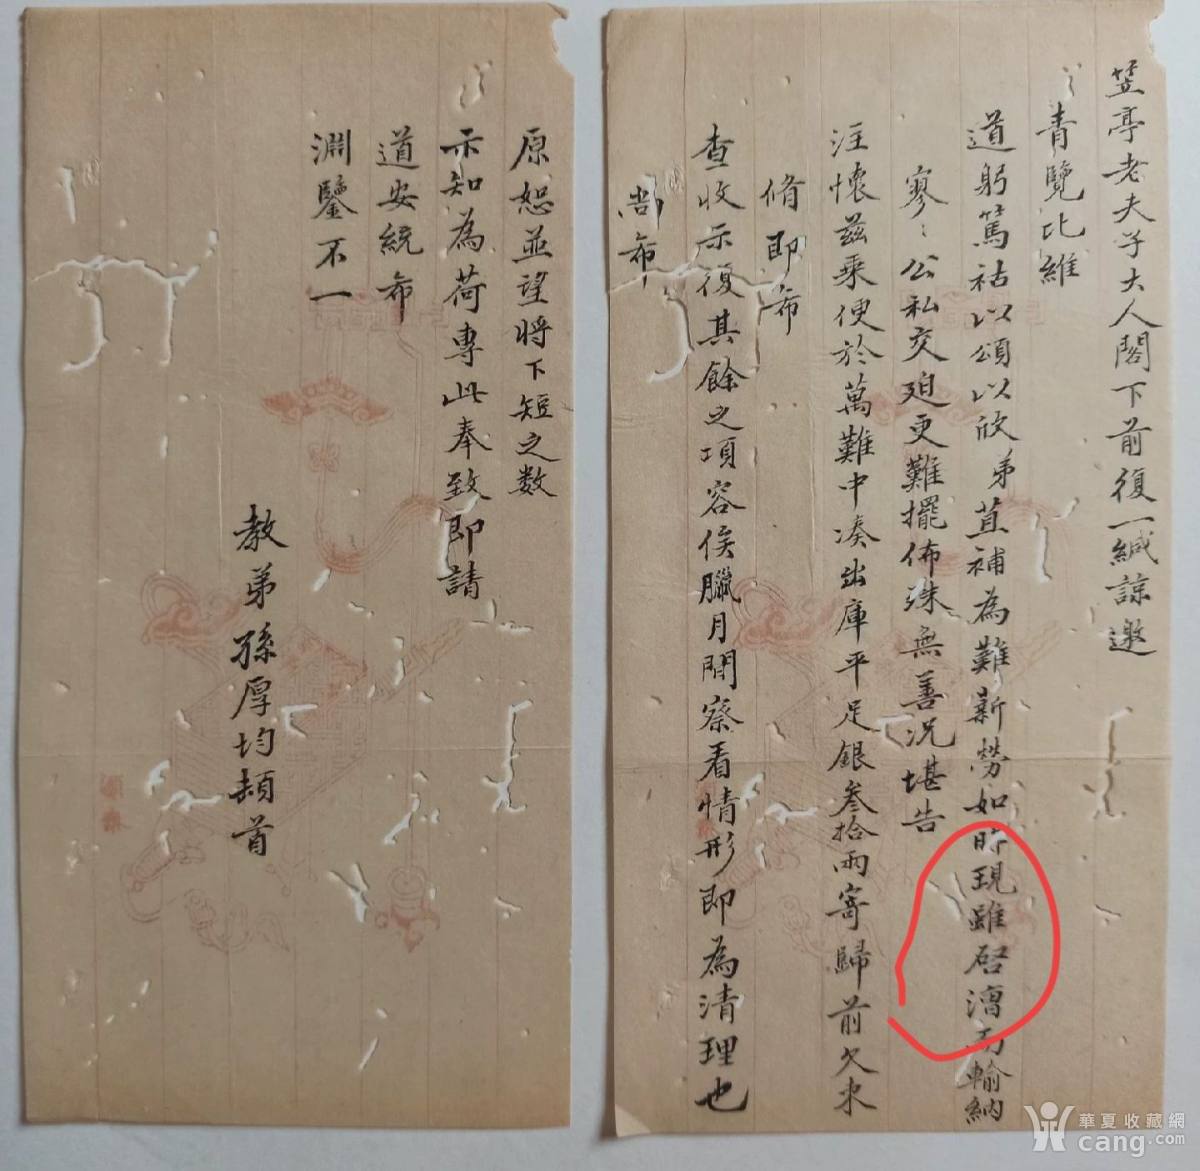 笠亭老夫子大人閣下前復一緘諒邀
青覽比維
道躬篤祜以頌以欣弟苴補為難薪勞如昨現雖啓漕而輸納
寥〻公私交迫更難擺佈殊無善況堪告
注懷茲乘便於萬難中凑出庫平足銀叁拾兩寄歸前欠束
脩即希
查收示復其餘之項容俟臘月間察看情形即為清理也
尚希
原恕並望將下短之数
示知為荷專此奉致即請
道安統希
淵鑒不一
教弟孫厚均頓首
華夏收藏網
cang.com